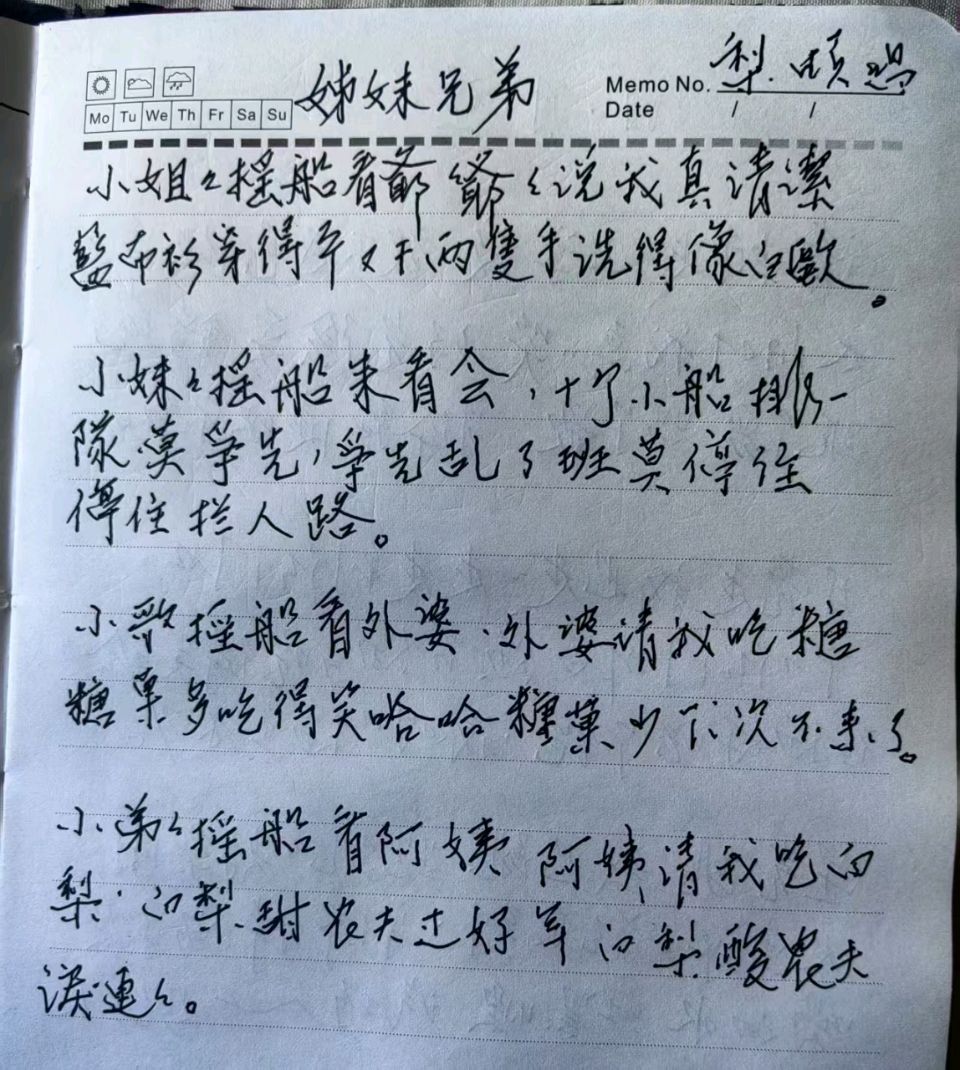 姊妹兄弟
Memo No. 梨.
Mo Tu We Th Fr Sa Su
Date / /
小姐々摇船看爺爺々说我真清潔
藍布衫穿得平又干,两隻手洗得像白歐。
小妹々摇船来看会,十个小船排一
隊莫爭先,爭先乱了班莫停住
停住拦人路。
小歌摇船看外婆.外婆请我吃糖
糖菓多吃得笑哈哈糖菓少下次不来了。
小弟々摇船看阿姨 阿姨请我吃白
梨.白梨甜农夫过好年白梨酸農夫
淚連々。